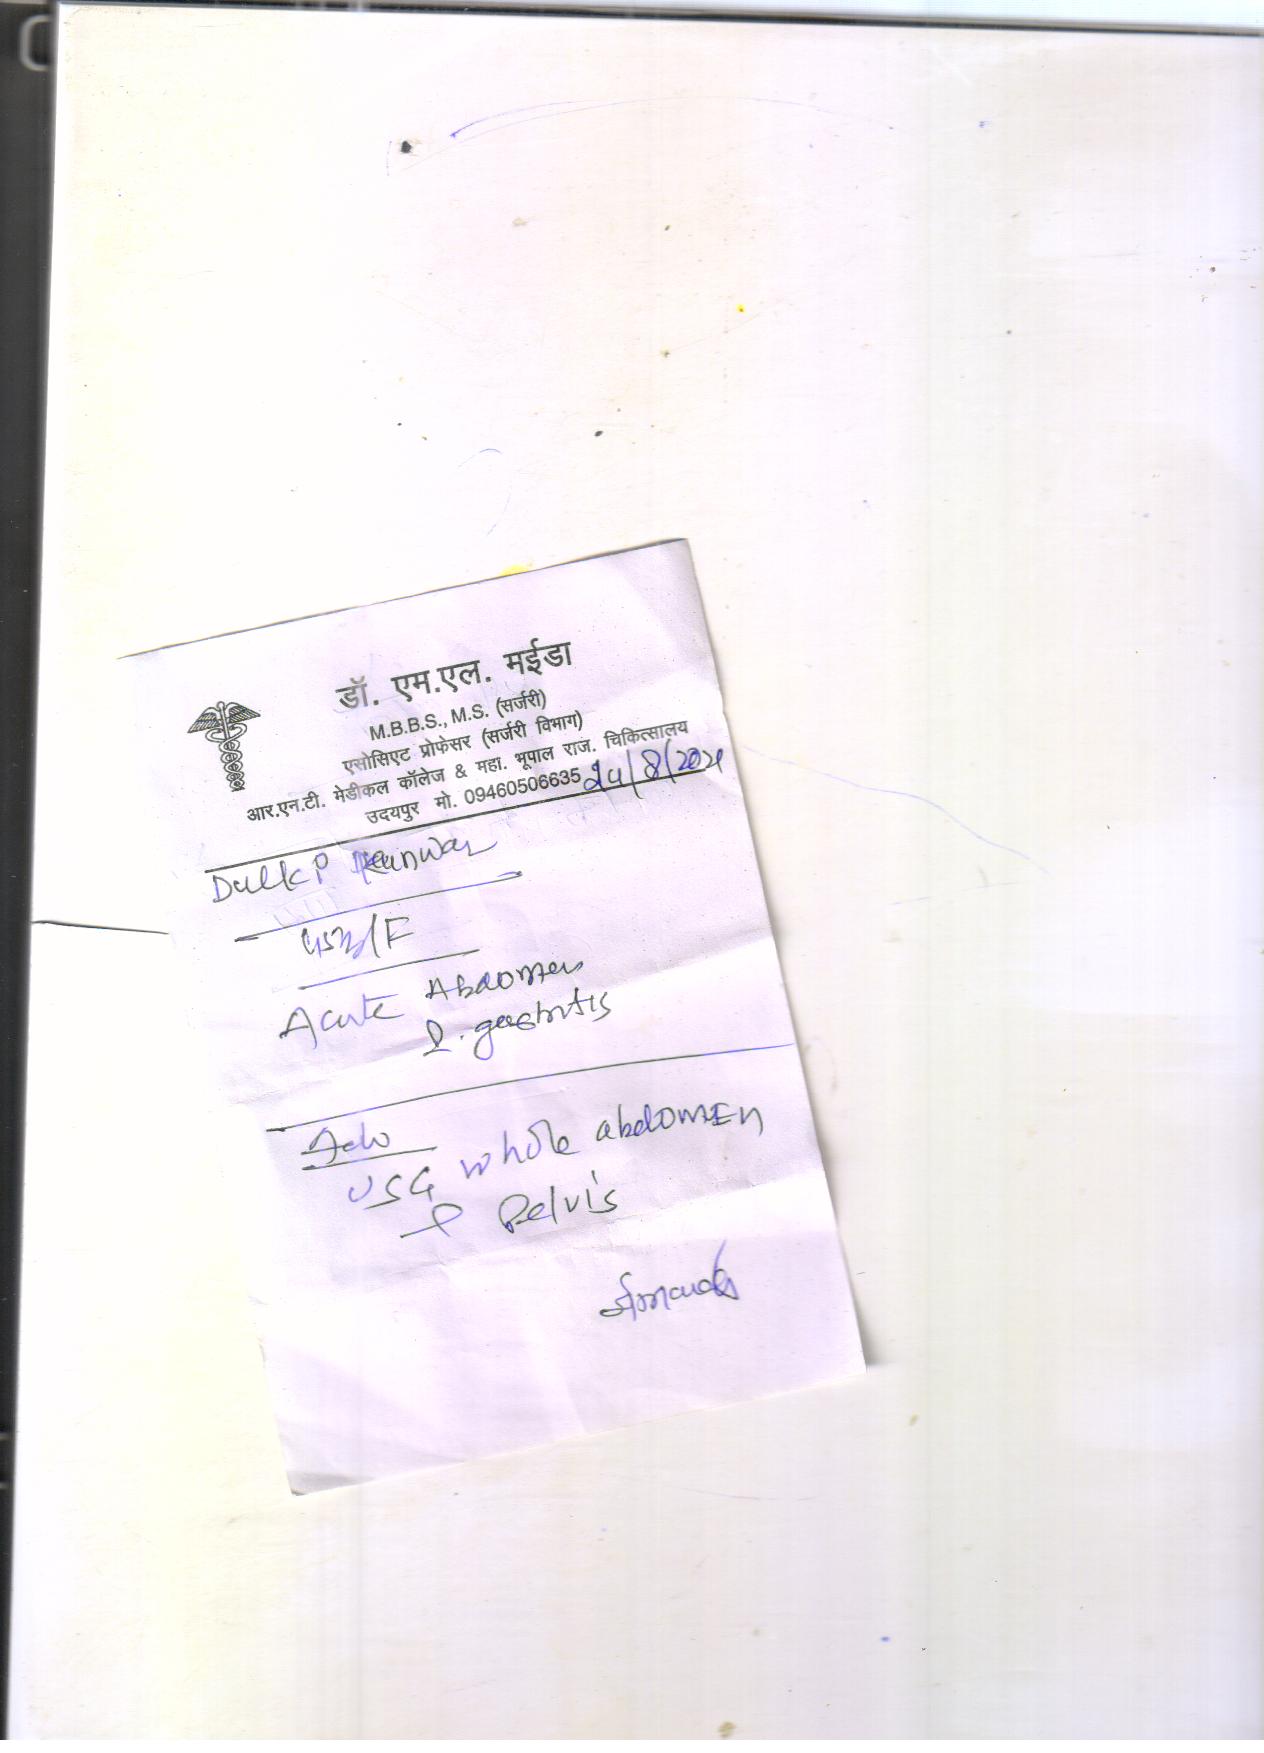 डॉ. एम.एल. मईडा
M.B.B.S., M.S. (सर्जरी)
एसोसिएट प्रोफेसर (सर्जरी विभाग)
आर.एन.टी. मेडीकल कॉलेज & महा. भूपाल राज. चिकित्सालय
उदयपुर मो. 09460506635
Kanwar
Acute Abdomen
gastritis
Adv
USG whole abdomen
& Pelvis